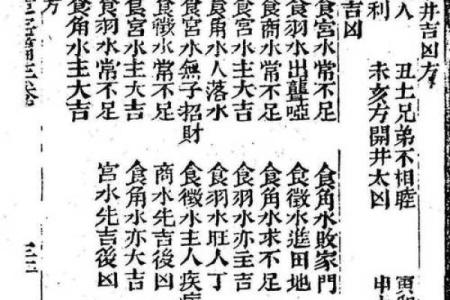 井吉凶方
丑土兄弟不相睦
利 未亥方開井太凶 申
吉凶
食宮水常不足 食角水敗家門
食羽水出聾啞 食徵水進田地
食商水常不足 食角水求不足
食宮水主大吉 食羽水亦主吉
食角水人落水 食羽水旺人丁
食宮水無子招財 食徵水主人疾
食徵水常不足 商水先吉後凶
食宮水主大吉 食角水亦大吉
食羽水常不足 宮水先吉後凶
食角水主大吉
方